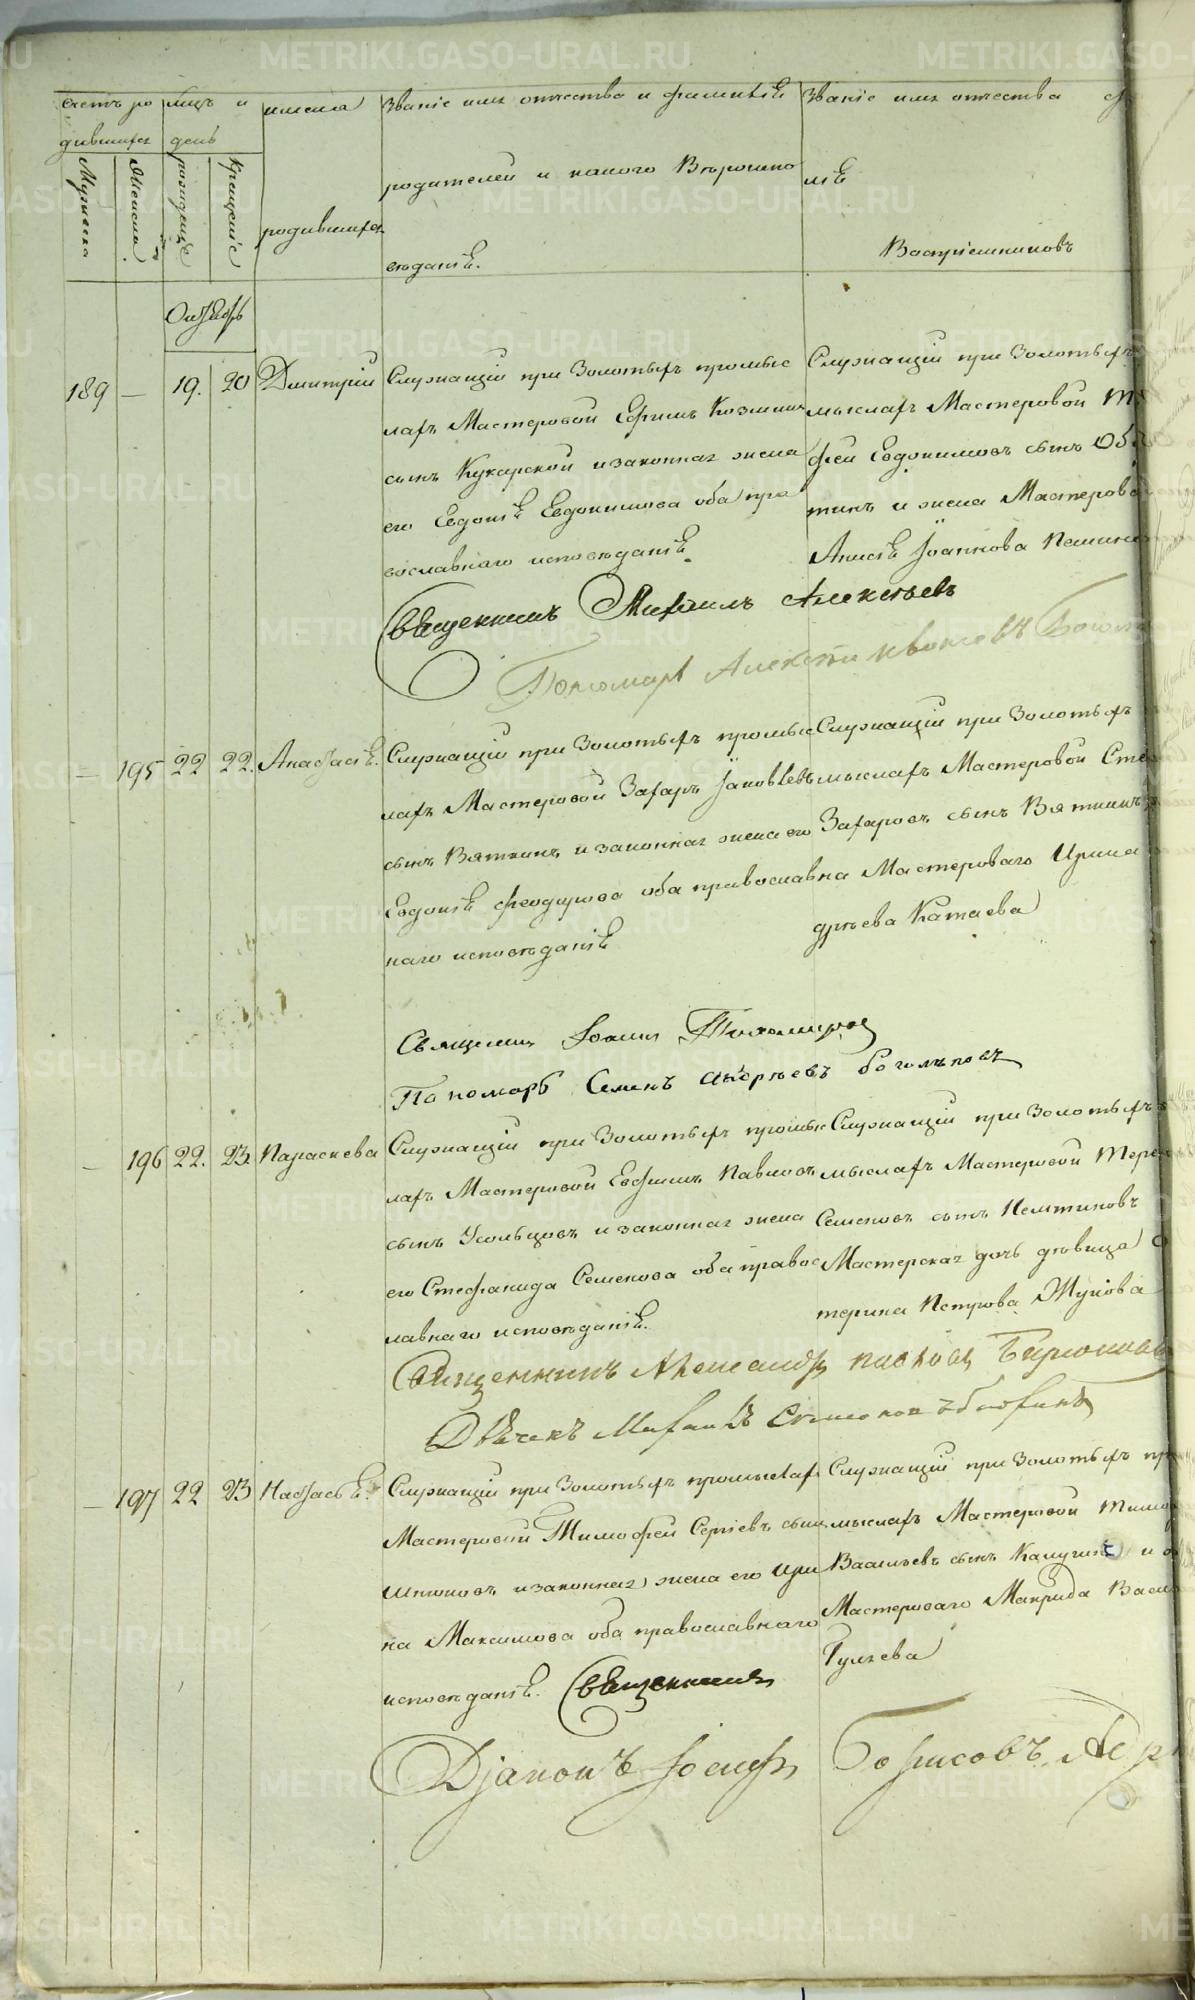 METRIKI.GASO-URAL.RU
Счетъ ро
дившихся
Мужеска
Женска
мцъ и
день
рожденіе
Крещеніе
имена
родившихся
Званіе имя отчество и фамилія
родителей и какого Вѣроиспо
вѣданія.
Званіе имя отчества
лія
Воспріемниковъ
Октябрь
189 — 19. 20 Дмитрій
Служащій при Золотыхъ промыс
лахъ Мастеровой Ефимъ Козминъ
сынъ Кукарской и законная жена
его Евдокія Евдокимова оба пра
вославнаго исповѣданія.
Служащій при Золотыхъ
мыслахъ Мастеровой
фей Евдокимовъ сынъ
тинъ и жена Мастерова
Анисія Іоаннова
Священникъ Михаилъ Алексѣевъ
Пономарь
— 195 22 22. Анастасія.
Служащій при Золотыхъ промыс
лахъ Мастеровой Захаръ Іаковлевъ
сынъ Вяткинъ и законная жена его
Евдокія Феодорова оба православ
наго исповѣданія
Служащій при Золотыхъ
мыслахъ Мастеровой
Захаровъ сынъ Вяткинъ
на Мастероваго Ирина
дреѣва Катаева
Священникъ Іоаннъ Тихомировъ
Пономарь Семенъ Андреѣевъ Боголѣповъ
— 196 22. 23. Параскева
Служащій при Золотыхъ промыс
лахъ Мастеровой Евфимъ Павловъ
сынъ Усольцовъ и законная жена
его Стефанида Семенова оба правос
лавнаго исповѣданія.
Служащій при Золотыхъ
мыслахъ Мастеровой
Семеновъ сынъ
Мастерская дочь дѣвица
терина Петрова Жукова
Священникъ Александръ Павловъ Бирюковъ
Дьячекъ Михаилъ
— 197 22 23 Настасья.
Служащій при Золотыхъ промыслахъ
Мастеровой Тимофей Сергіевъ сынъ
и законная жена его Ири
на Максимова оба православнаго
исповѣданія.
Служащій при Золотыхъ пр
мыслахъ Мастеровой
Васильевъ сынъ Калугинъ и
Мастероваго Макрида
Гуляева
Священникъ
Діаконъ Іосифъ Борисовъ